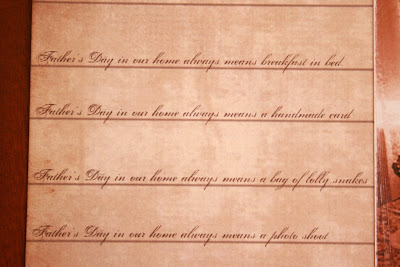 Father's Day in our home always means breakfast in bed
Father's Day in our home always means a handmade card
Father's Day in our home always means a bag of lolly snakes
Father's Day in our home always means a photo shoot